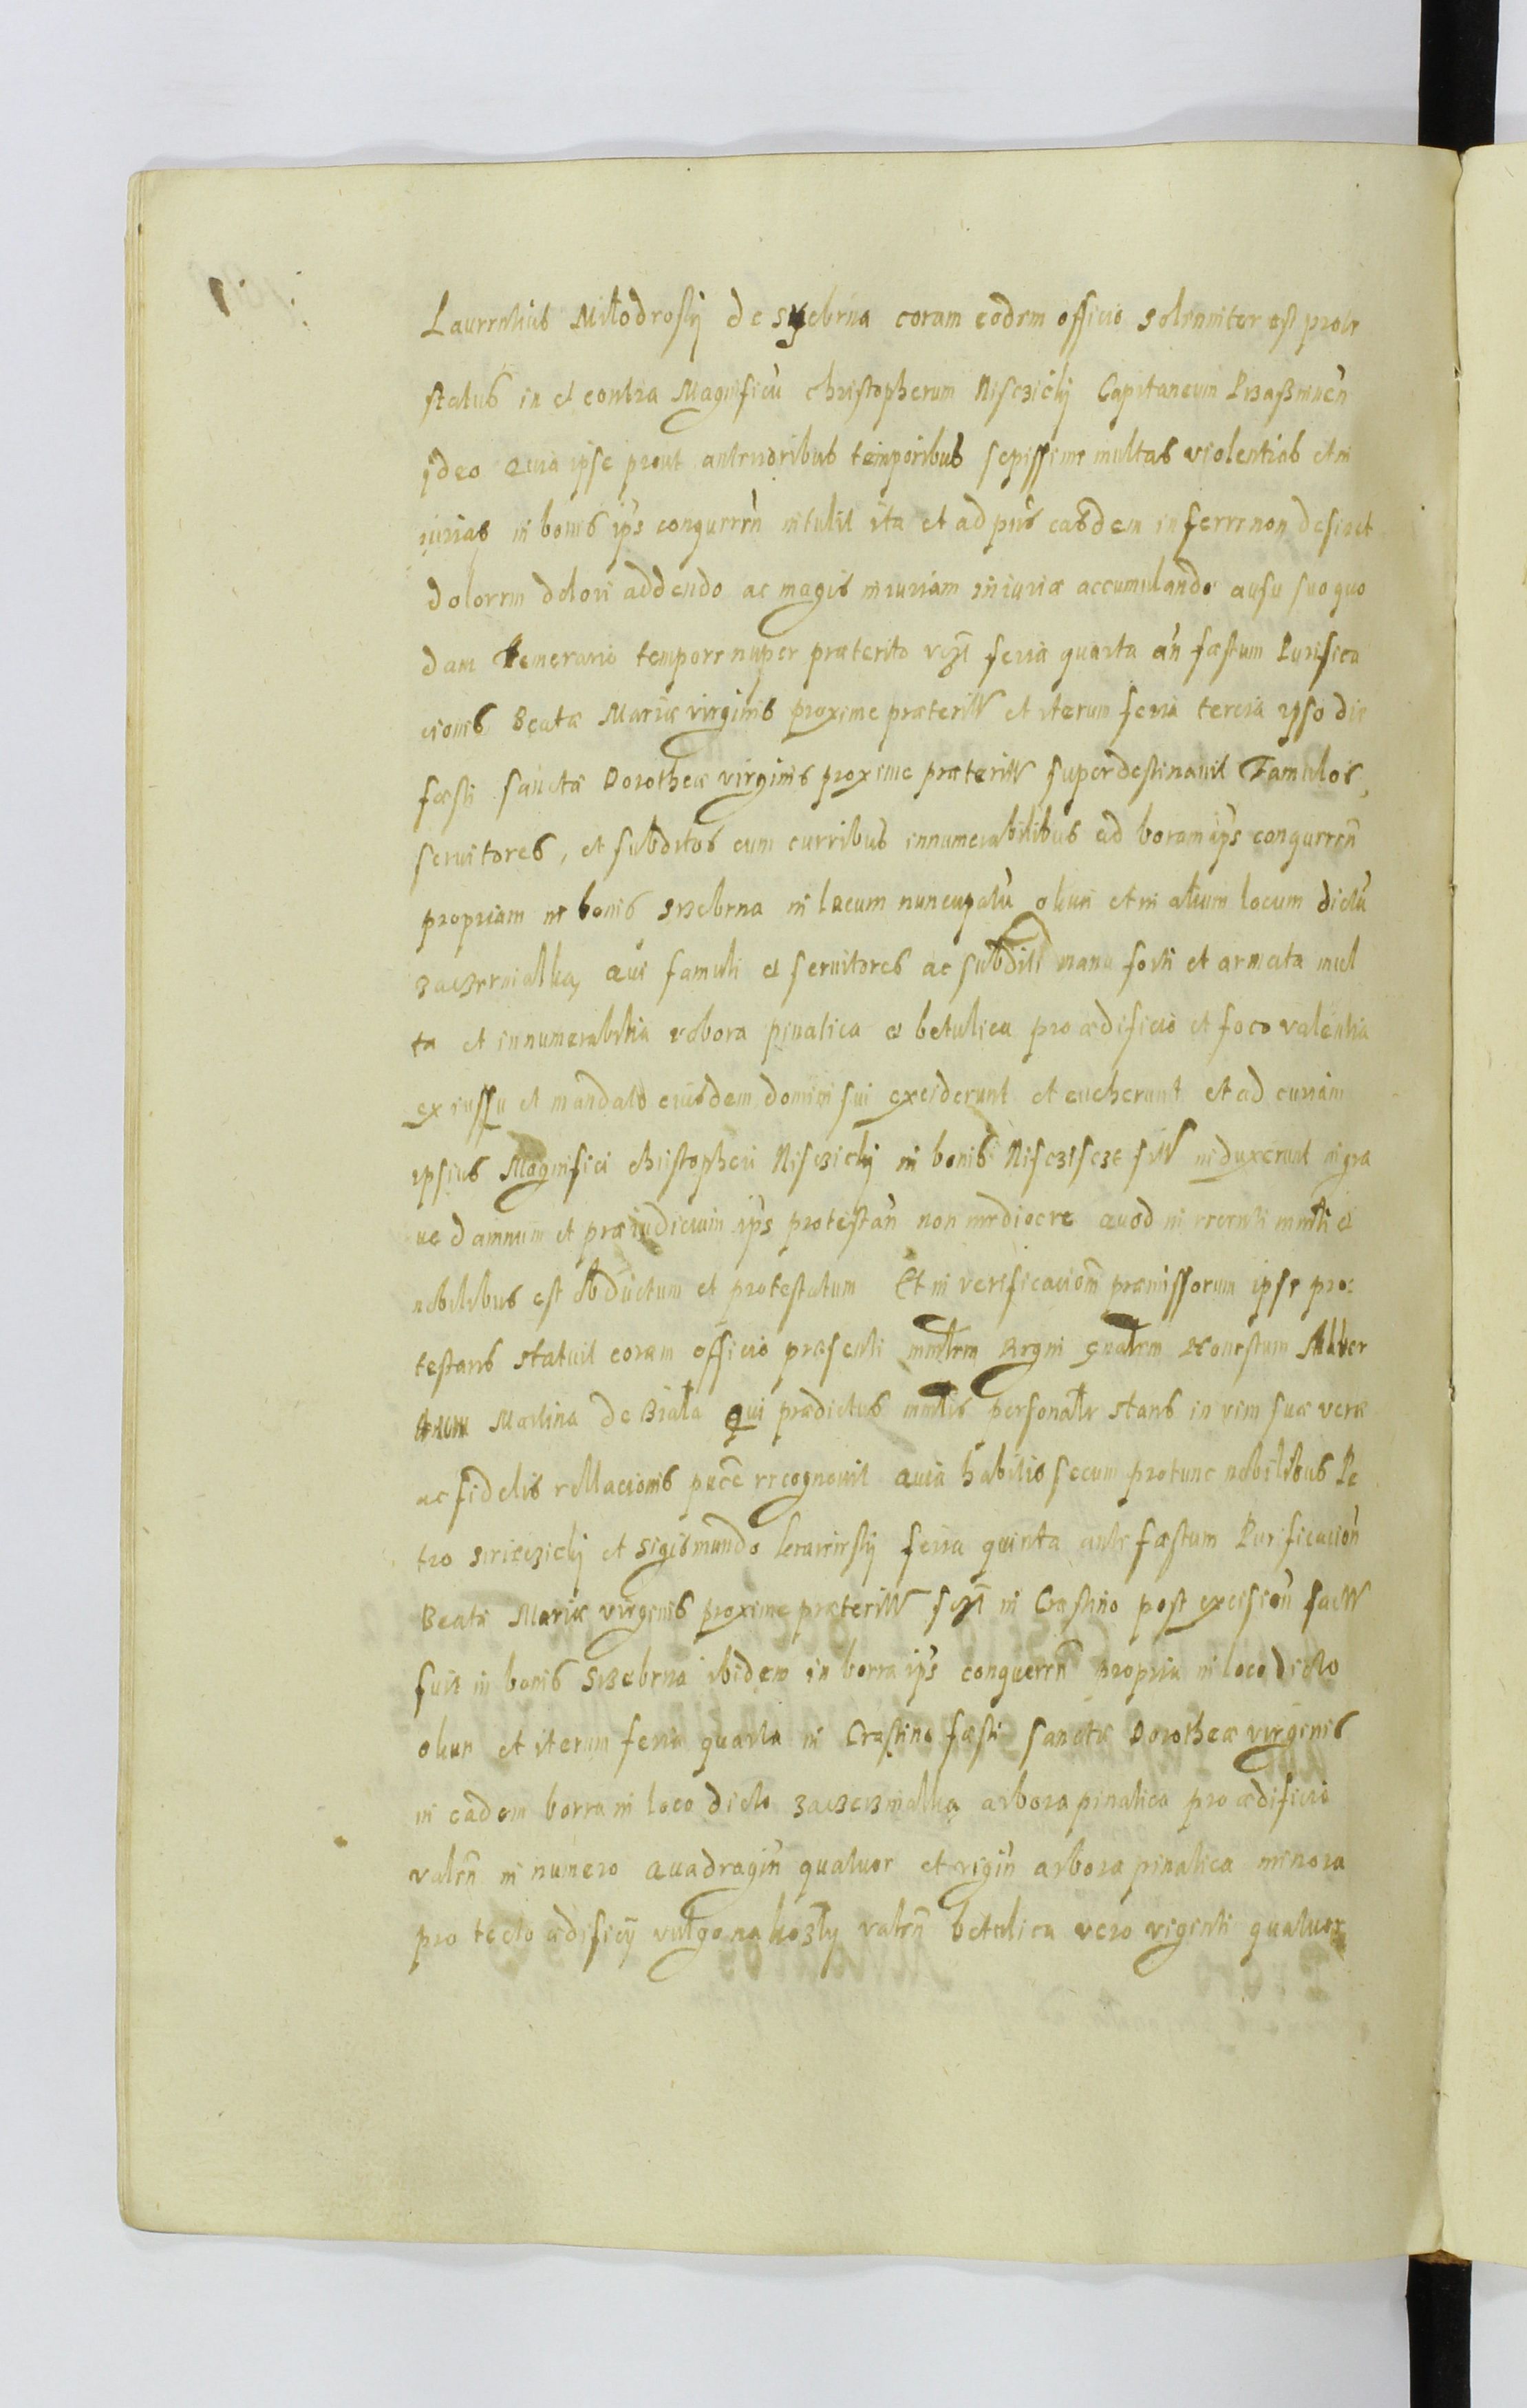 Laurentius Miłodrosky de Srzebrna coram eodem officio solenniter est prote
status in et contra Magnificū Christopherum Nisczicky Capitaneum Przaßnuen̄
ideo Quia ipse prout anterioribus temporibus sepissime multas violentias et in
iurias in bonis ip̄s conqueren̄ intulit ita et ad pn̄s easdem inferre non desinet
dolorem dolori addendo ac magis iniuriam iniuriæ accumulando ausu suo quo
dam temerario tempore nuper præterito vꝫt feria quarta an̄ fæstum Purifica
cionis Beatæ Mariæ virginis proxime præterit et iterum feria tercia ipso die
fæsti sanctæ Dorotheæ virginis proxime præterit superdestinavit Famulos,
servitores, et subditos cum curribus innumerabilibus ad boram ip̄s conqueren̄
propriam in bonis Srzebrna in locum nuncupatū okun et in alium locum dictū
zaczerniałką, Qui famuli et servitores ac subditi manu forti et armata mul
ta et innumerabilia robora pinatica et betulica pro ædificio et foco valentia
ex iussu et mandato eiusdem domini sui exciderunt et evexerunt et ad curiam
ipsius Magnifici Christopheri Nisczicky in bonis Nisczicze sitt induxerunt in gra
ve damnum et præiudicium ip̄s protestan̄ non mediocre Quod in recenti mintli et
nobilibus est obductum et protestatum Et in verificaciom̄ præmissorum ipse pro:
testans statuit coram officio præsenti mintlrem Regni gnałrem Honestum
Martina de Biała Qui prædictus mintlis personałr stans in vim suæ veræ
ac fidelis rellacionis pucē recognovit Quia habitis secum protunc nobilibus Pe
tro et Sigismundo feria quinta ante fæstum Purificacion̄
Beatæ Mariæ virginis proxime præterit sꝫt in Crastino post excision̄ fact
fuit in bonis Srzebrna ibidem in borra ip̄s conqueren̄ propria in loco dicto
okun et iterum feria quarta in Crastino fæsti sanctæ Dorotheæ virginis
in eadem borra in loco dicto zaczerniałką arbora pinatica pro ædificio
valen̄ in numero Quadragin̄ quatuor et vigin̄ arbora pinatica minora
pro tecto ædificÿ vulgo na kozły valen̄ betulica vero viginti quatuor